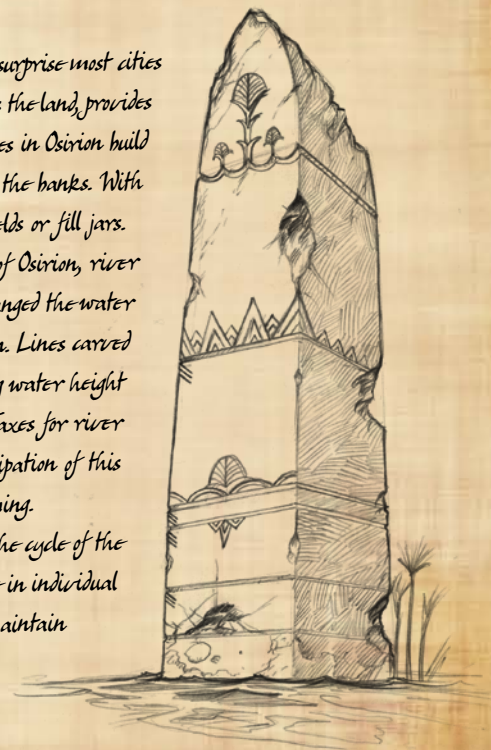 surprise most cities
the land, provides
es in Osirion build
the banks. With
elds or fill jars.
of Osirion, river
nged the water
n. Lines carved
g water height
axes for river
ipation of this
ning.
he cycle of the
in individual
aintain